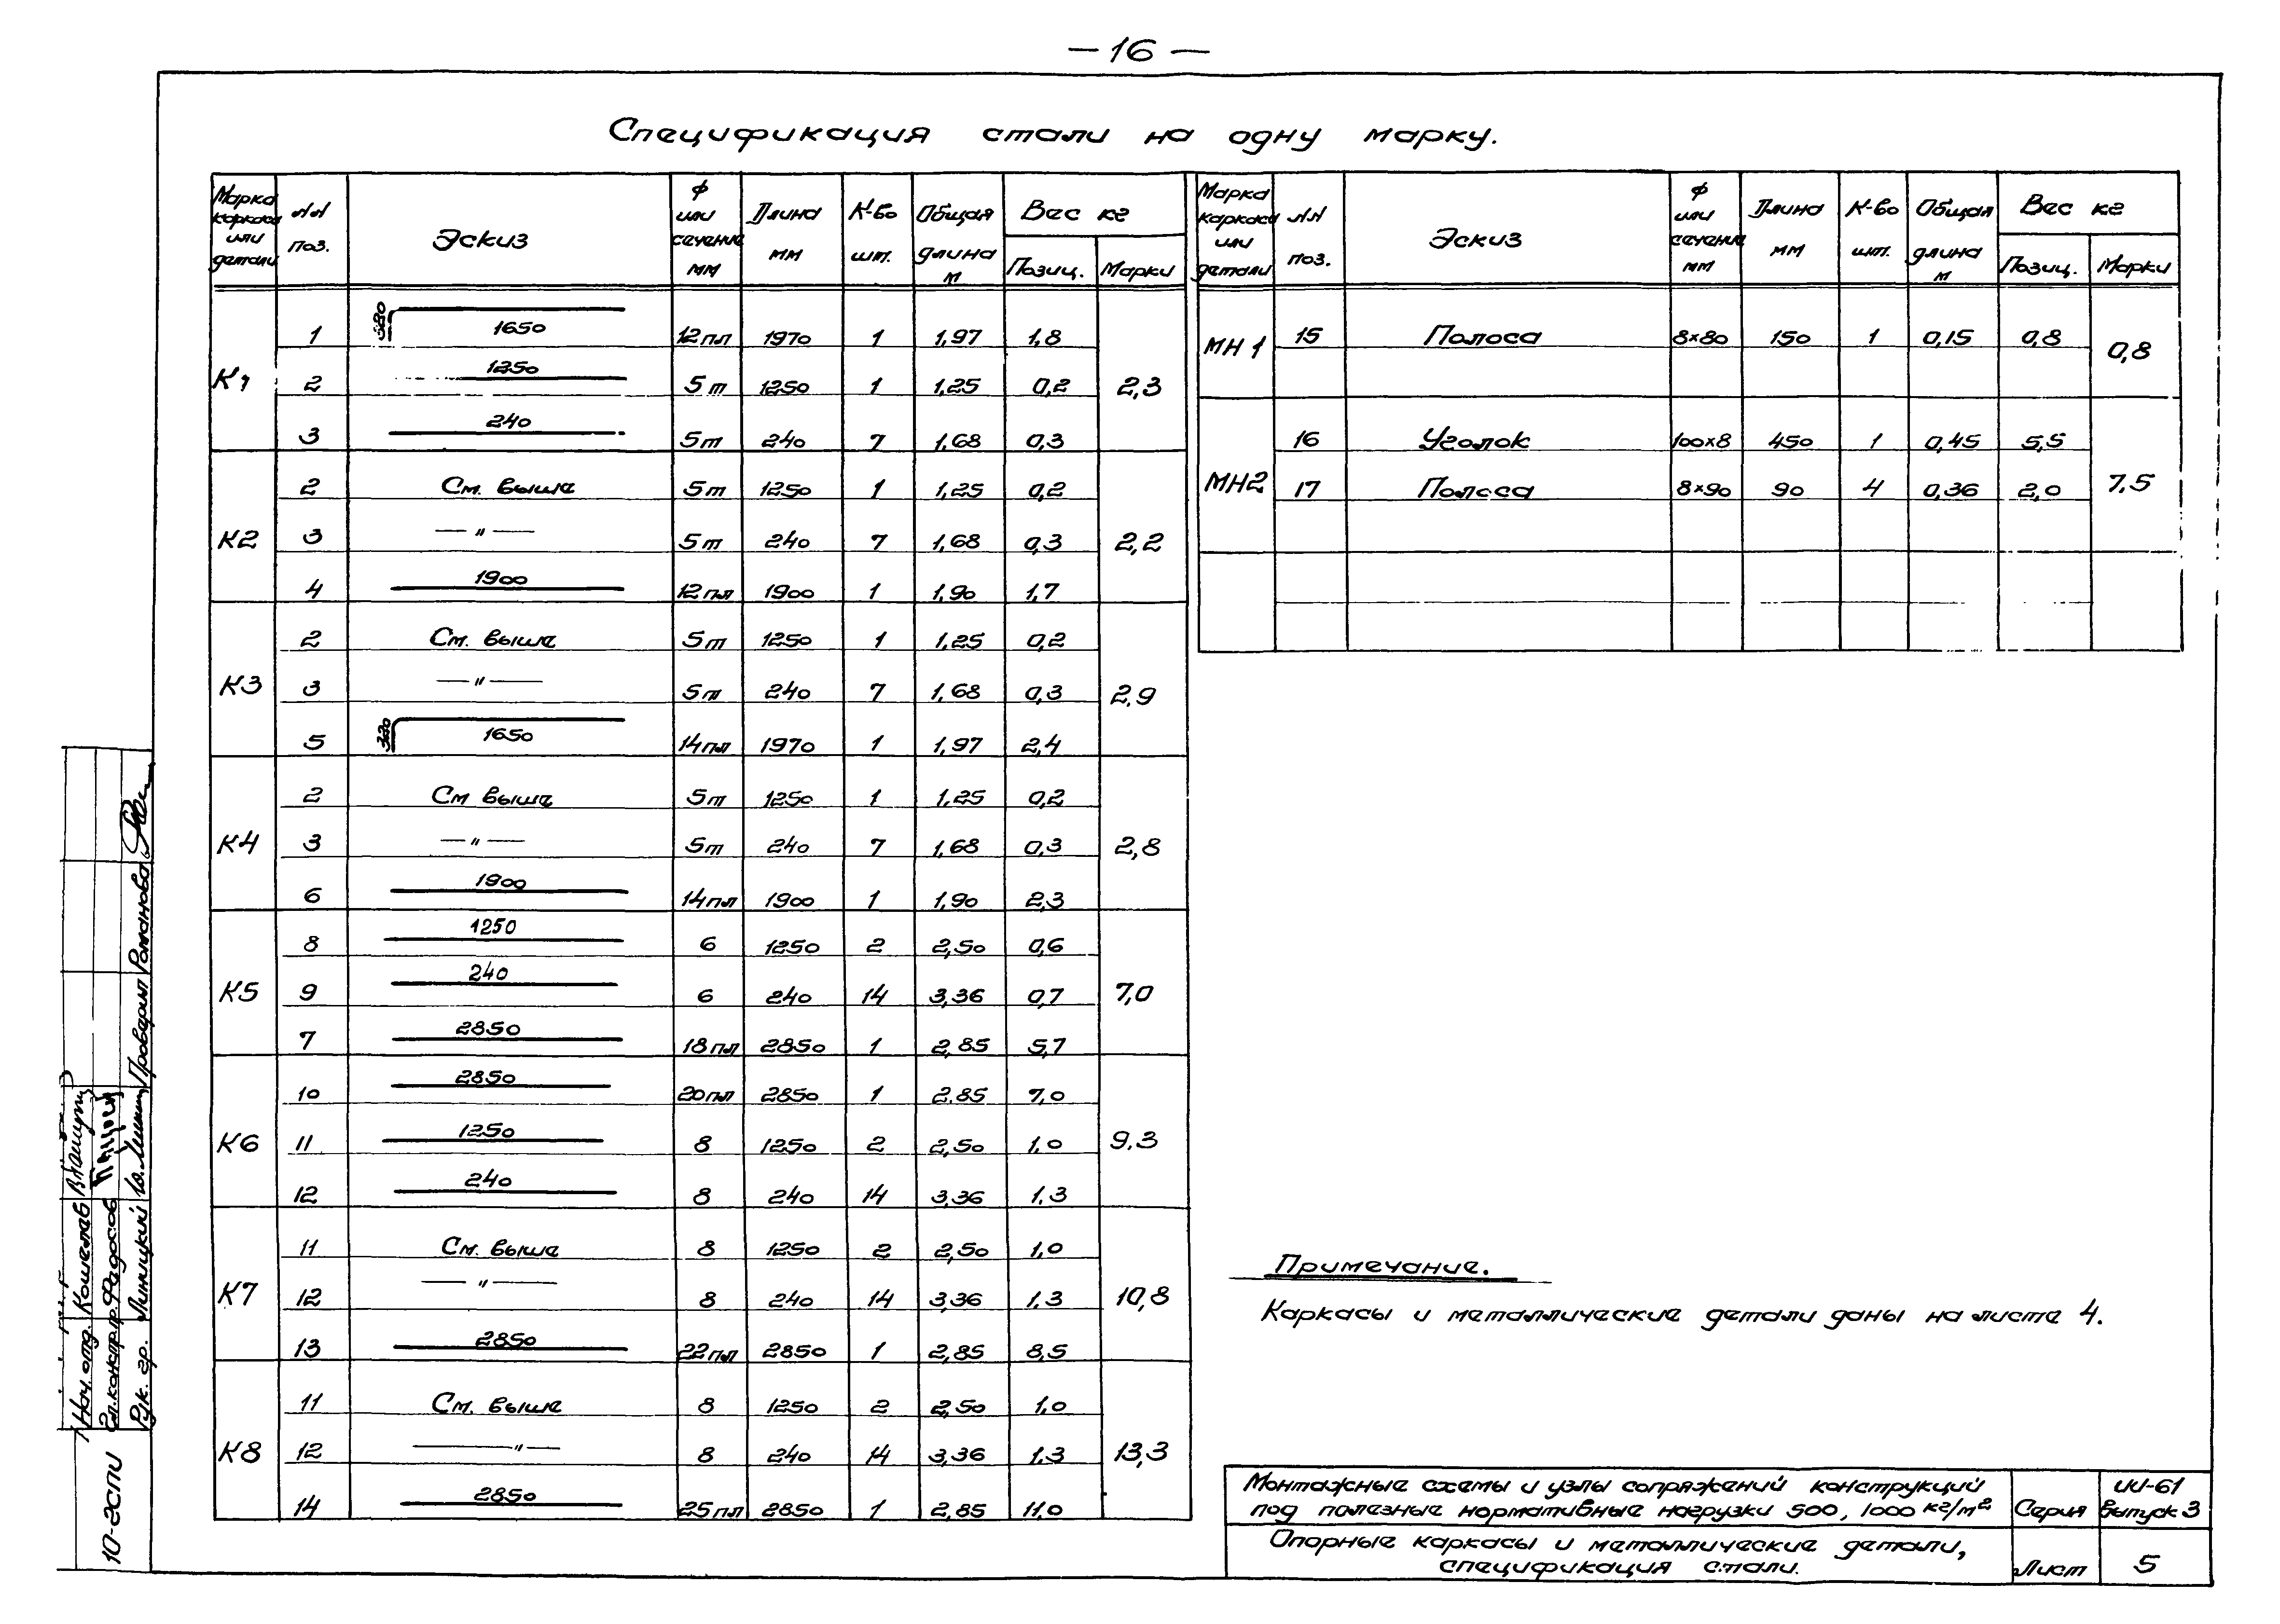 — 16 —
Спецификация стали на одну марку.
Марка каркаса или детали №№ поз. Эскиз ф или сечение мм Длина мм К-во шт. Общая длина м Вес кг Позиц. Марки
К1 2,3
1 320 1650 12пл 1970 1 1,97 1,8
2 1250 5т 1250 1 1,25 0,2
3 240 5т 240 7 1,68 0,3
К2 2,2
2 См. выше 5т 1250 1 1,25 0,2
3 — " — 5т 240 7 1,68 0,3
4 1900 12пл 1900 1 1,90 1,7
К3 2,9
2 См. выше 5т 1250 1 1,25 0,2
3 — " — 5т 240 7 1,68 0,3
5 320 1650 14пл 1970 1 1,97 2,4
К4 2,8
2 См выше 5т 1250 1 1,25 0,2
3 — " — 5т 240 7 1,68 0,3
6 1900 14пл 1900 1 1,90 2,3
К5 7,0
8 1250 6 1250 2 2,50 0,6
9 240 6 240 14 3,36 0,7
7 2850 18пл 2850 1 2,85 5,7
К6 9.3
10 2850 20пл 2850 1 2.85 7,0
11 1250 8 1250 2 2,50 1,0
12 240 8 240 14 3,36 1,3
К7 10,8
11 См. выше 8 1250 2 2,50 1,0
12 — " — 8 240 14 3,36 1,3
13 2850 22пл 2850 1 2,85 8,5
К8 13,3
11 См. выше 8 1250 2 2,50 1,0
12 — " — 8 240 14 3,36 1,3
14 2850 25пл 2850 1 2,85 11,0
Марка каркаса или детали №№ поз. Эскиз ф или сечение мм Длина мм К-во шт. Общая длина м Вес кг Позиц. Марки
МН1 0,8
15 Полоса 8×80 150 1 0,15 0,8
МН2 7.5
16 Уголок 100×8 450 1 0,45 5,5
17 Полоса 8×90 90 4 0,36 2,0
Примечание.
Каркасы и металлические детали даны на листе 4.
Монтажные схемы и узлы сопряжений конструкций
под полезные нормативные нагрузки 500, 1000 кг/м²
Серия ИИ-61 Выпуск 3
Опорные каркасы и металлические детали,
спецификация стали.
Лист 5
Нач. отд. Кошелев
Гл.констр.пр. Федосов
Рук. гр. Линицкий
Проверил Романова
10-2СПИ